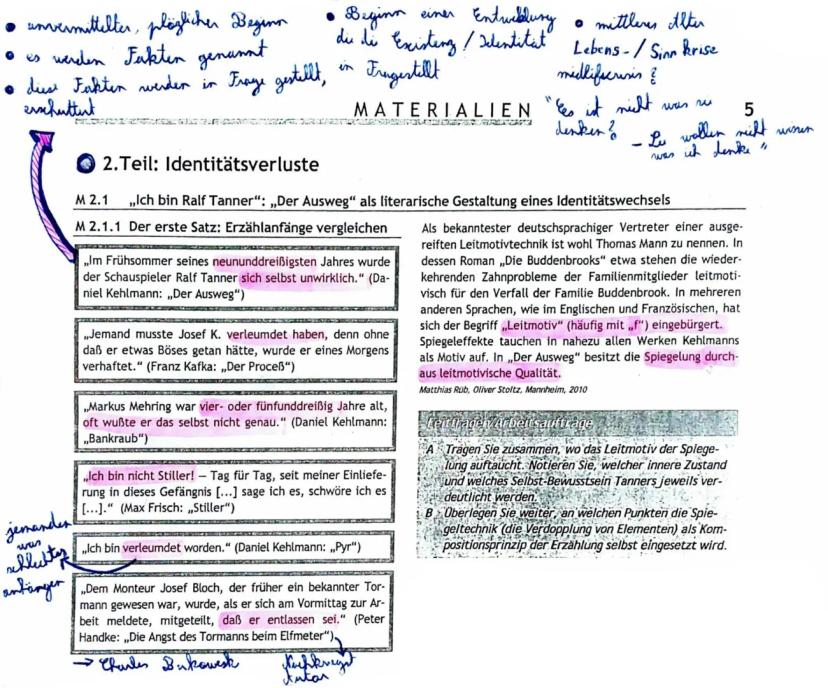 • unvermittelter, plözlicher Beginn
• es werden Fakten genannt
• diese Fakten werden in Frage gestellt,
erschüttert
• Beginn einer Entwicklung
die die Existenz / Identität
in Frage stellt
• mittleres Alter
Lebens-/Sinnkrise
"Es ist nicht was sie
denken?
- Sie wollen nicht wissen
was ich denke"
MATERIALIEN 5
2.Teil: Identitätsverluste
M 2.1 „Ich bin Ralf Tanner“: „Der Ausweg“ als literarische Gestaltung eines Identitätswechsels
M 2.1.1 Der erste Satz: Erzählanfänge vergleichen
„Im Frühsommer seines neununddreißigsten Jahres wurde
der Schauspieler Ralf Tanner sich selbst unwirklich.“ (Da-
niel Kehlmann: „Der Ausweg“)
„Jemand musste Josef K. verleumdet haben, denn ohne
daß er etwas Böses getan hätte, wurde er eines Morgens
verhaftet.“ (Franz Kafka: „Der Proceß“)
„Markus Mehring war vier- oder fünfunddreißig Jahre alt,
oft wußte er das selbst nicht genau.“ (Daniel Kehlmann:
„Bankraub“)
„Ich bin nicht Stiller! — Tag für Tag, seit meiner Einliefe-
rung in dieses Gefängnis [...] sage ich es, schwöre ich es
[...].“ (Max Frisch: „Stiller“)
jemanden
was
schlechtes
anhängen
„Ich bin verleumdet worden.“ (Daniel Kehlmann: „Pyr“)
„Dem Monteur Josef Bloch, der früher ein bekannter Tor-
mann gewesen war, wurde, als er sich am Vormittag zur Ar-
beit meldete, mitgeteilt, daß er entlassen sei.“ (Peter
Handke: „Die Angst des Tormanns beim Elfmeter“)
→ Charles Bukowski
Nachkriegs
Autor
Als bekanntester deutschsprachiger Vertreter einer ausge-
reiften Leitmotivtechnik ist wohl Thomas Mann zu nennen. In
dessen Roman „Die Buddenbrooks“ etwa stehen die wieder-
kehrenden Zahnprobleme der Familienmitglieder leitmoti-
visch für den Verfall der Familie Buddenbrook. In mehreren
anderen Sprachen, wie im Englischen und Französischen, hat
sich der Begriff „Leitmotiv“ (häufig mit „f“) eingebürgert.
Spiegeleffekte tauchen in nahezu allen Werken Kehlmanns
als Motiv auf. In „Der Ausweg“ besitzt die Spiegelung durch-
aus leitmotivische Qualität.
Matthias Rüb, Oliver Stoltz, Mannheim, 2010
Leitfragen/Arbeitsaufträge
A Tragen Sie zusammen, wo das Leitmotiv der Spiege-
lung auftaucht. Notieren Sie, welcher innere Zustand
und welches Selbst-Bewusstsein Tanners jeweils ver-
deutlicht werden.
B Überlegen Sie weiter, an welchen Punkten die Spie-
geltechnik (die Verdopplung von Elementen) als Kom-
positionsprinzip der Erzählung selbst eingesetzt wird.